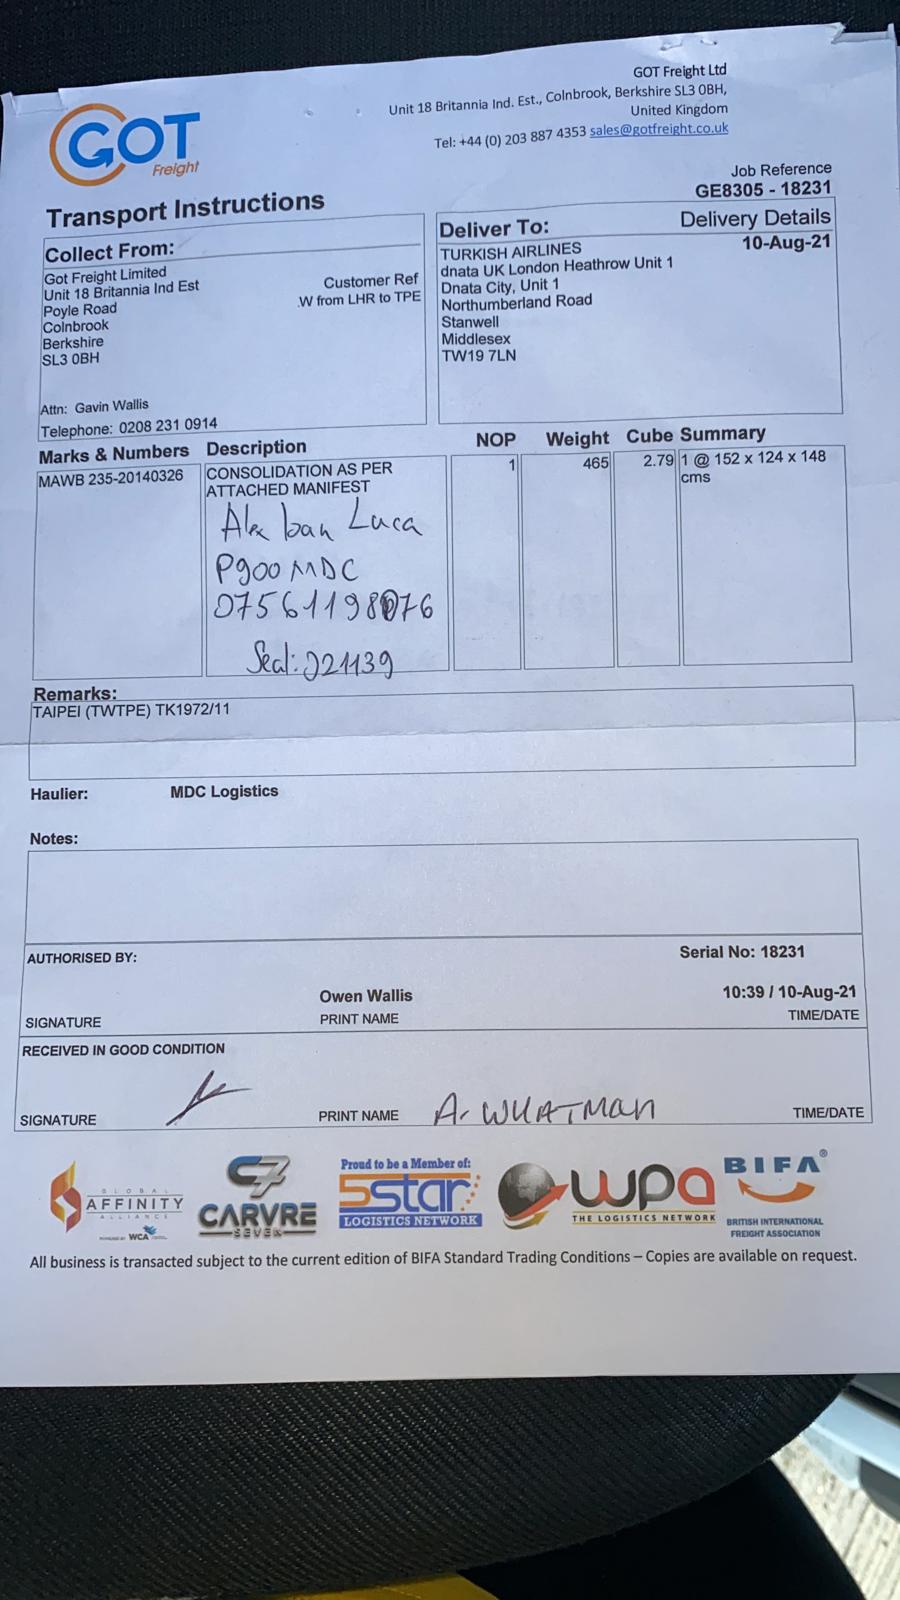 GOT
Freight
GOT Freight Ltd
Unit 18 Britannia Ind. Est., Colnbrook, Berkshire SL3 0BH,
United Kingdom
Tel: +44 (0) 203 887 4353 sales@gotfreight.co.uk
Job Reference
GE8305 - 18231
Transport Instructions
Collect From:
Got Freight Limited
Unit 18 Britannia Ind Est
Poyle Road
Colnbrook
Berkshire
SL3 0BH
Customer Ref
.W from LHR to TPE
Attn: Gavin Wallis
Telephone: 0208 231 0914
Deliver To:
Delivery Details
10-Aug-21
TURKISH AIRLINES
dnata UK London Heathrow Unit 1
Dnata City, Unit 1
Northumberland Road
Stanwell
Middlesex
TW19 7LN
Marks & Numbers Description NOP Weight Cube Summary
MAWB 235-20140326 CONSOLIDATION AS PER 1 465 2.79 1 @ 152 x 124 x 148
ATTACHED MANIFEST cms
Alex Ioan Luca
P900 MDC
07561198076
Seal: J21139
Remarks:
TAIPEI (TWTPE) TK1972/11
Haulier: MDC Logistics
Notes:
AUTHORISED BY: Serial No: 18231
Owen Wallis 10:39 / 10-Aug-21
SIGNATURE PRINT NAME TIME/DATE
RECEIVED IN GOOD CONDITION
SIGNATURE PRINT NAME A. WHATMAN TIME/DATE
GLOBAL
AFFINITY
ALLIANCE
POWERED BY WCA
C7
CARVRE
SEVEN
Proud to be a Member of:
5star
LOGISTICS NETWORK
wpa
THE LOGISTICS NETWORK
BIFA®
BRITISH INTERNATIONAL
FREIGHT ASSOCIATION
All business is transacted subject to the current edition of BIFA Standard Trading Conditions – Copies are available on request.